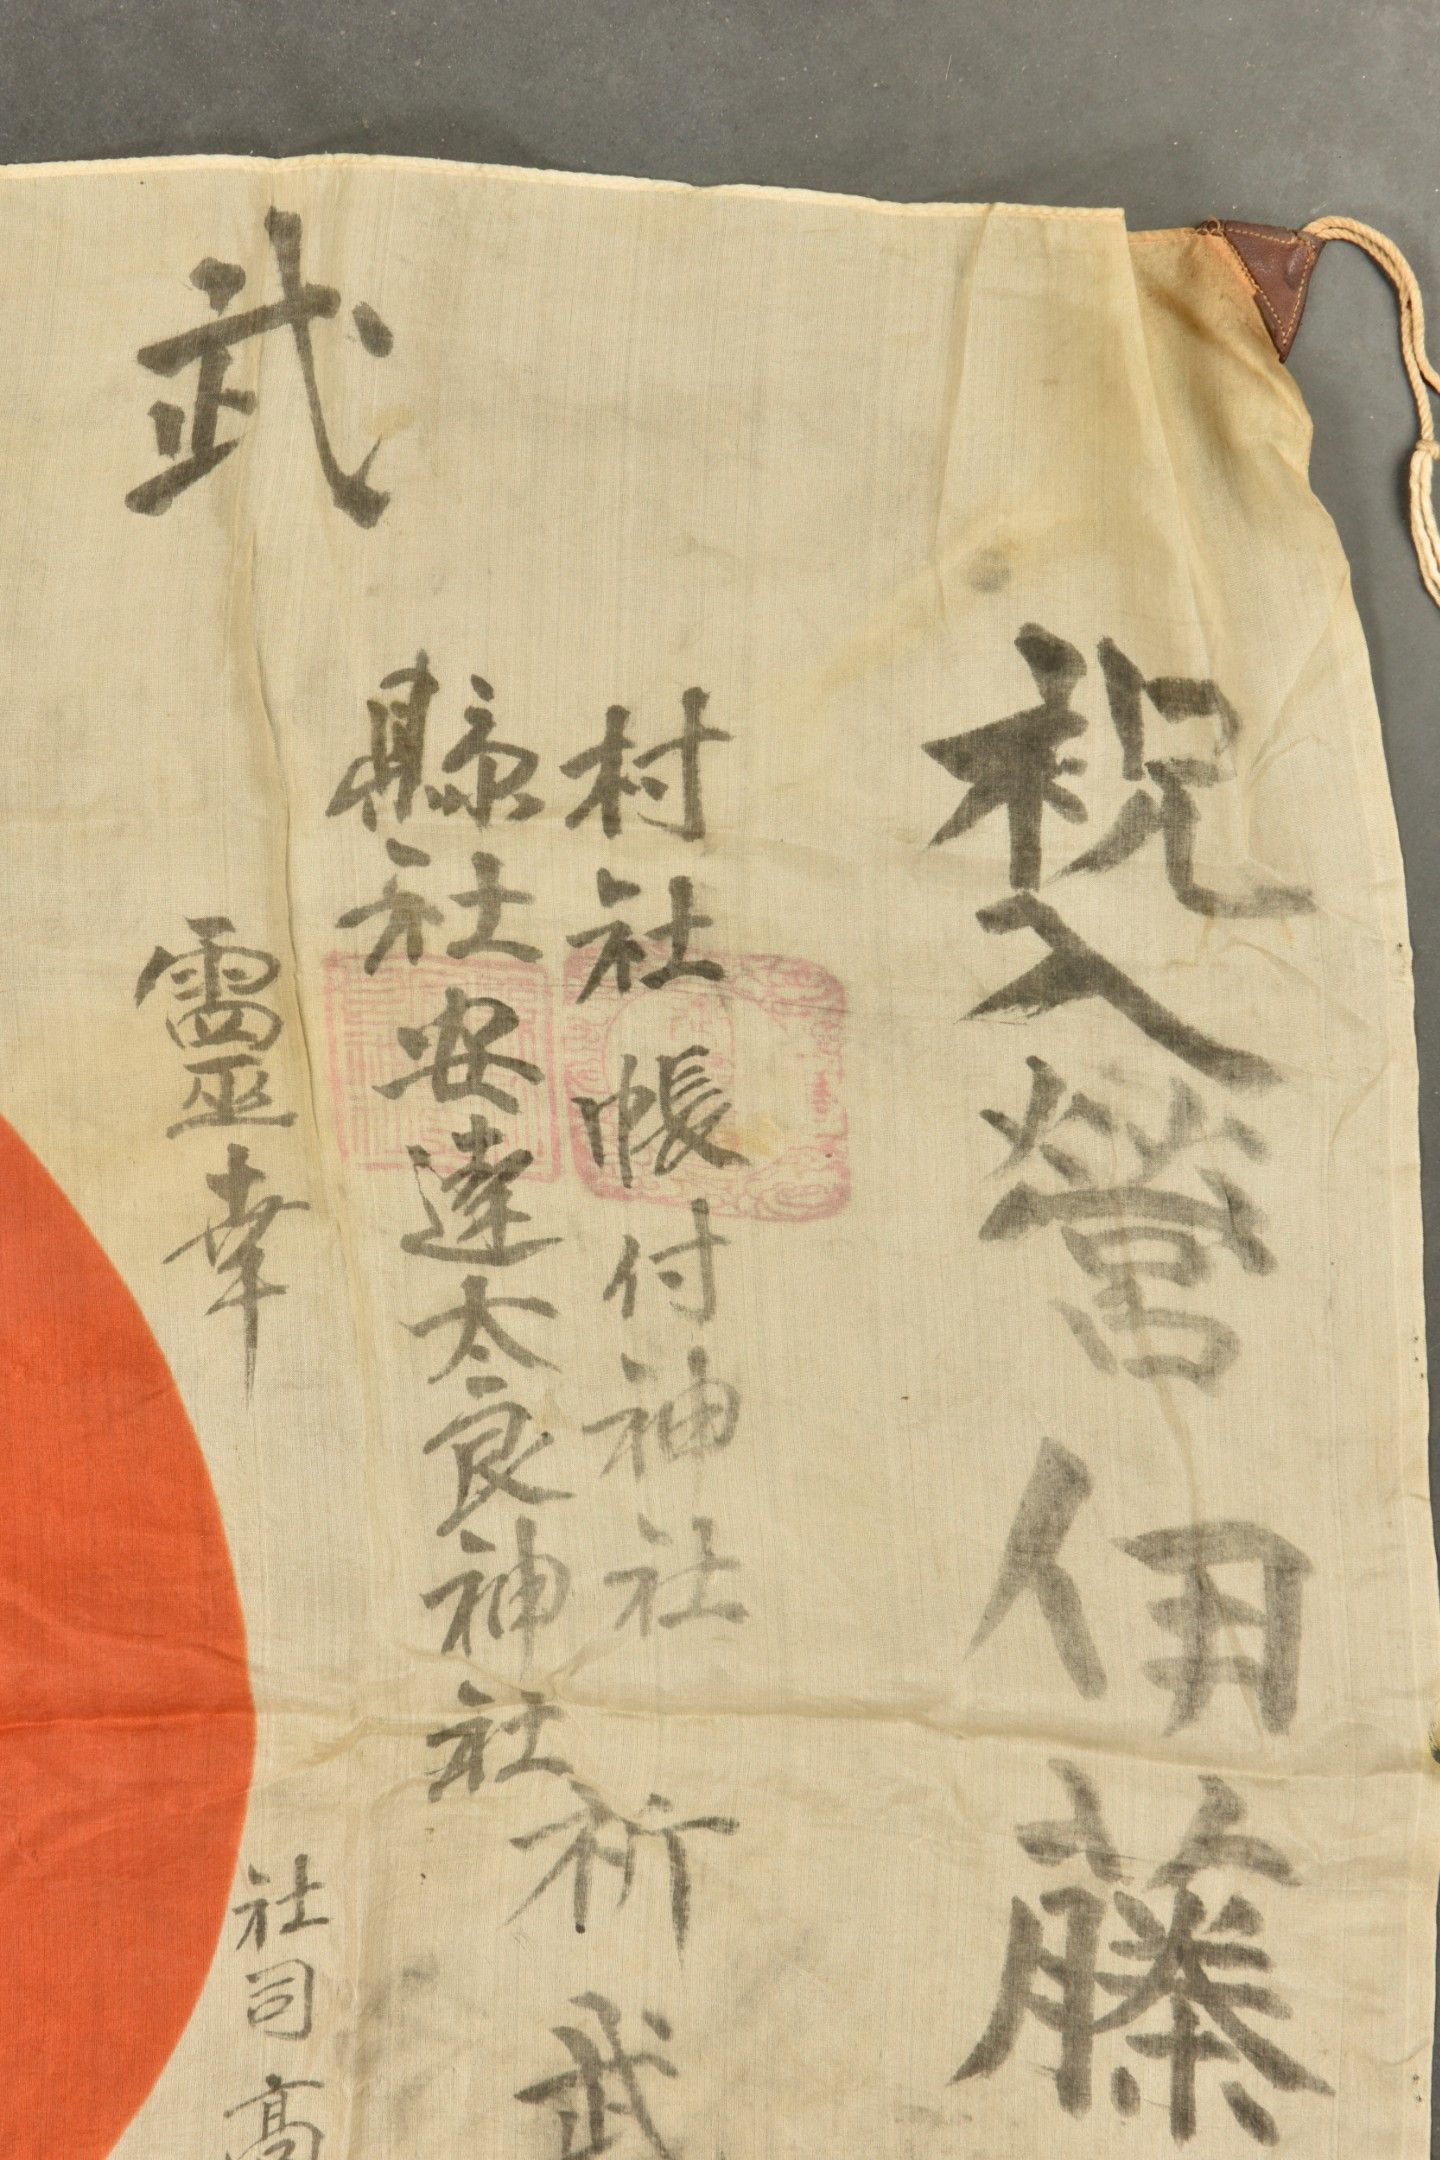 祝入營伊藤
村社帳付神社
縣社安達太良神社
祈武
武
靈幸
社司高